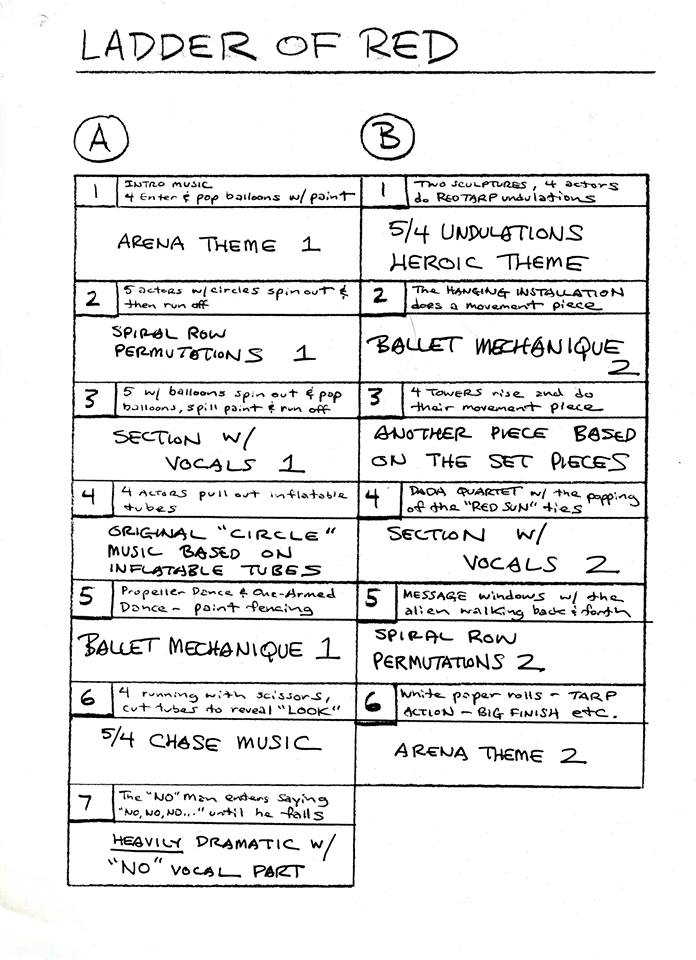 LADDER OF RED
A
1
INTRO MUSIC
4 Enter & pop balloons w/ paint
ARENA THEME 1
2
5 actors w/circles spin out &
then run off
SPIRAL ROW
PERMUTATIONS 1
3
5 w/ balloons spin out & pop
balloons, spill paint & run off
SECTION W/
VOCALS 1
4
4 ACTORS pull out inflatable
tubes
ORIGINAL "CIRCLE"
MUSIC BASED ON
INFLATABLE TUBES
5
Propeller Dance & One-Armed
Dance - paint fencing
BALLET MECHANIQUE 1
6
4 running with scissors,
cut tubes to reveal "LOOK"
5/4 CHASE MUSIC
7
The "NO" man enters saying
"NO, NO, NO..." until he falls
HEAVILY DRAMATIC W/
"NO" VOCAL PART
B
1
TWO SCULPTURES, 4 actors
do RED TARP undulations
5/4 UNDULATIONS
HEROIC THEME
2
The HANGING INSTALLATION
does a movement piece
BALLET MECHANIQUE
2
3
4 TOWERS rise and do
their movement piece
ANOTHER PIECE BASED
ON THE SET PIECES
4
DADA QUARTET w/ the popping
of the "RED SUN" ties
SECTION W/
VOCALS 2
5
MESSAGE windows w/ the
alien walking back & forth
SPIRAL ROW
PERMUTATIONS 2
6
White paper rolls - TARP
ACTION - BIG FINISH etc.
ARENA THEME 2